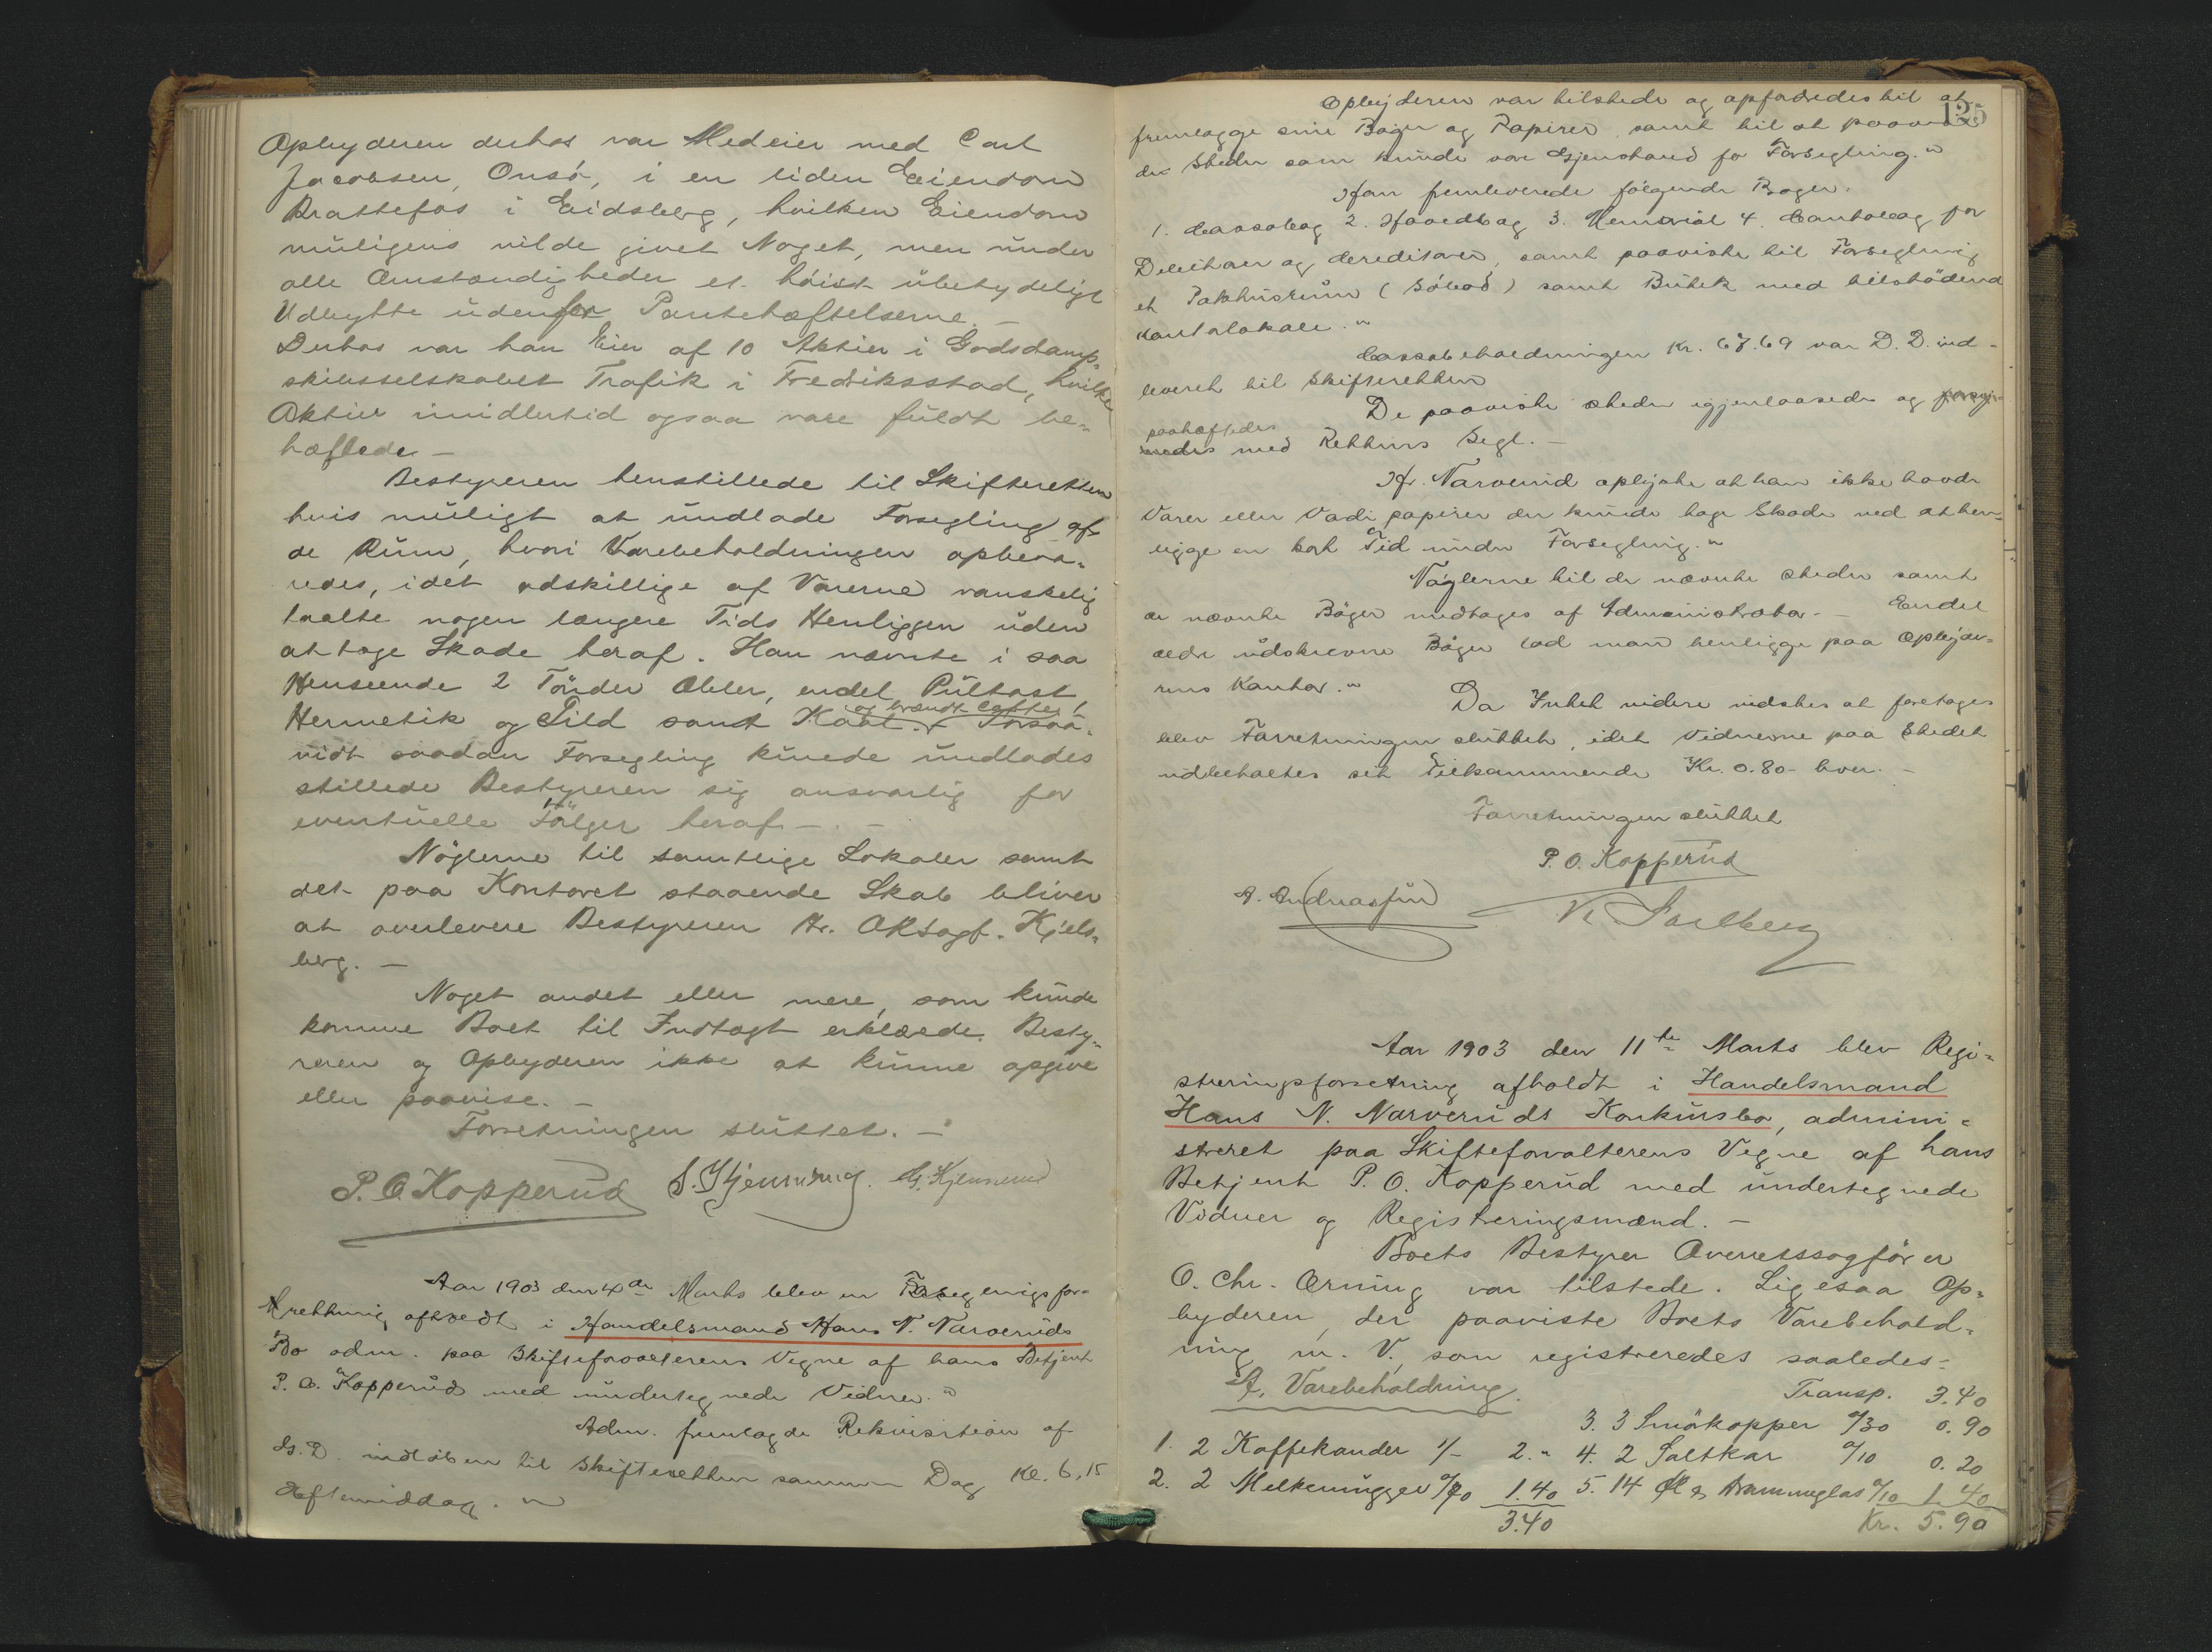 Opbyderen derhos var Medeier med Carl
Jacobsen, Onsö, i en liden Eiendom
Brattefos i Eidsberg, hvilken Eiendom
muligens vilde givet Noget, men under
alle Omstændigheder et höist ubetydeligt
Udbytte udenfor Pantehæftelserne. —
Derhos var han Eier af 10 Aktier i Godsdamp-
skibsselskabet Trafik i Fredriksstad, hvilke
Aktier imidlertid ogsaa vare fuldt be-
hæftede. —
Bestyreren henstillede til Skifteretten
hvis muligt at undlade Forsegling af
de Rum, hvori Varebeholdningen opbeva-
redes, idet adskillige af Varerne vanskelig
taalte nogen længere Tids Henliggen uden
at tage Skade heraf. Han nævnte i saa
Henseende 2 Tönder Æbler, endel Pultost,
og brændt Caffe
Hermetik og Sild samt Kaal. Forsaa-
vidt saadan Forsegling kunde undlades
stillede Bestyreren sig ansvarlig for
eventuelle Fölger heraf. —
Nöglerne til samtlige Lokaler samt
det paa Kontoret staaende Skab bliver
at overlevere Bestyreren Hr. ORSagf. Kjels-
berg. —
Noget andet eller mere, som kunde
komme Boet til Indtægt erklærede Besty-
reren og Opbyderen ikke at kunne opgive
eller paavise. —
Forretningen sluttet. —
P. O. Kopperud S. Hjenning.
Aar 1903 den 4de Marts blev en Forseglingsfor-
retning afholdt i Handelsmand Hans N. Narveruds
Bo adm. paa Skifteforvalterens Vegne af hans Betjent
P. O. Kopperud med undertegnede Vidner."
Adm. fremlagde Rekvisition af
ds. D. indloben til Skifteretten samme Dag Kl. 6,15
Eftermiddag. "
125
Opbyderen var tilstede og opfordredes til at
fremlægge sine Böger og Papirer, samt til at paavise
de Steder som kunde være Gjenstand for Forsegling."
Han fremleverede fölgende Böger:
1. Cassabog 2. Hovedbog 3. Memorial 4. Contobog for
Debitorer og Creditorer, samt paaviste til Forsegling
et Pakhusrum (Söbod) samt Butik med tilstödend
Kontorlokale. "
Cassabeholdningen Kr. 67.69 var D. D. ind-
leveret til Skifteretten
De paaviste Steder igjenlaasedes og forsy-
paahæftedes
nedes med Rettens Segl. —
Hr. Narverud oplyste at han ikke havde
Varer eller Værdipapirer der kunde tage Skade ved at hen-
ligge en kort Tid under Forsegling. "
Nöglerne til de nævnte Steder samt
de nævnte Böger medtages af Administrator. — Endel
ældre udskrevne Böger lod man henligge paa Opbyde-
rens Kontor. "
Da Intet videre vidstes at foretages
blev Forretningen sluttet, idet Vidnerne paa Stedet
udbetaltes sit Tilkommende Kr. 0.80 hver. —
Forretningen sluttet
P. O. Kopperud
A. Andreassen
Aar 1903 den 11te Marts blev Regi-
streringsforretning afholdt i Handelsmand
Hans N. Narveruds Konkursbo, admini-
streret paa Skifteforvalterens Vegne af hans
Betjent P. O. Kopperud med undertegnede
Vidner og Registreringsmænd. —
Boets Bestyrer Overretssagförer
O. Chr. Ørning var tilstede. Ligesaa Op-
byderen, der paaviste Boets Varebehold-
ning m. V., som registreredes saaledes:
A. Varebeholdning. Transp. 3.40
3. 3 Smörkopper a/30 0.90
1. 2 Kaffekander 1/- 2. " 4. 2 Saltkar a/10 0.20
2. 2 Melkemugger a/70 1.40 5. 14 Öl & Dramméglas a/10 1.40
3.40 Kr. 5.90